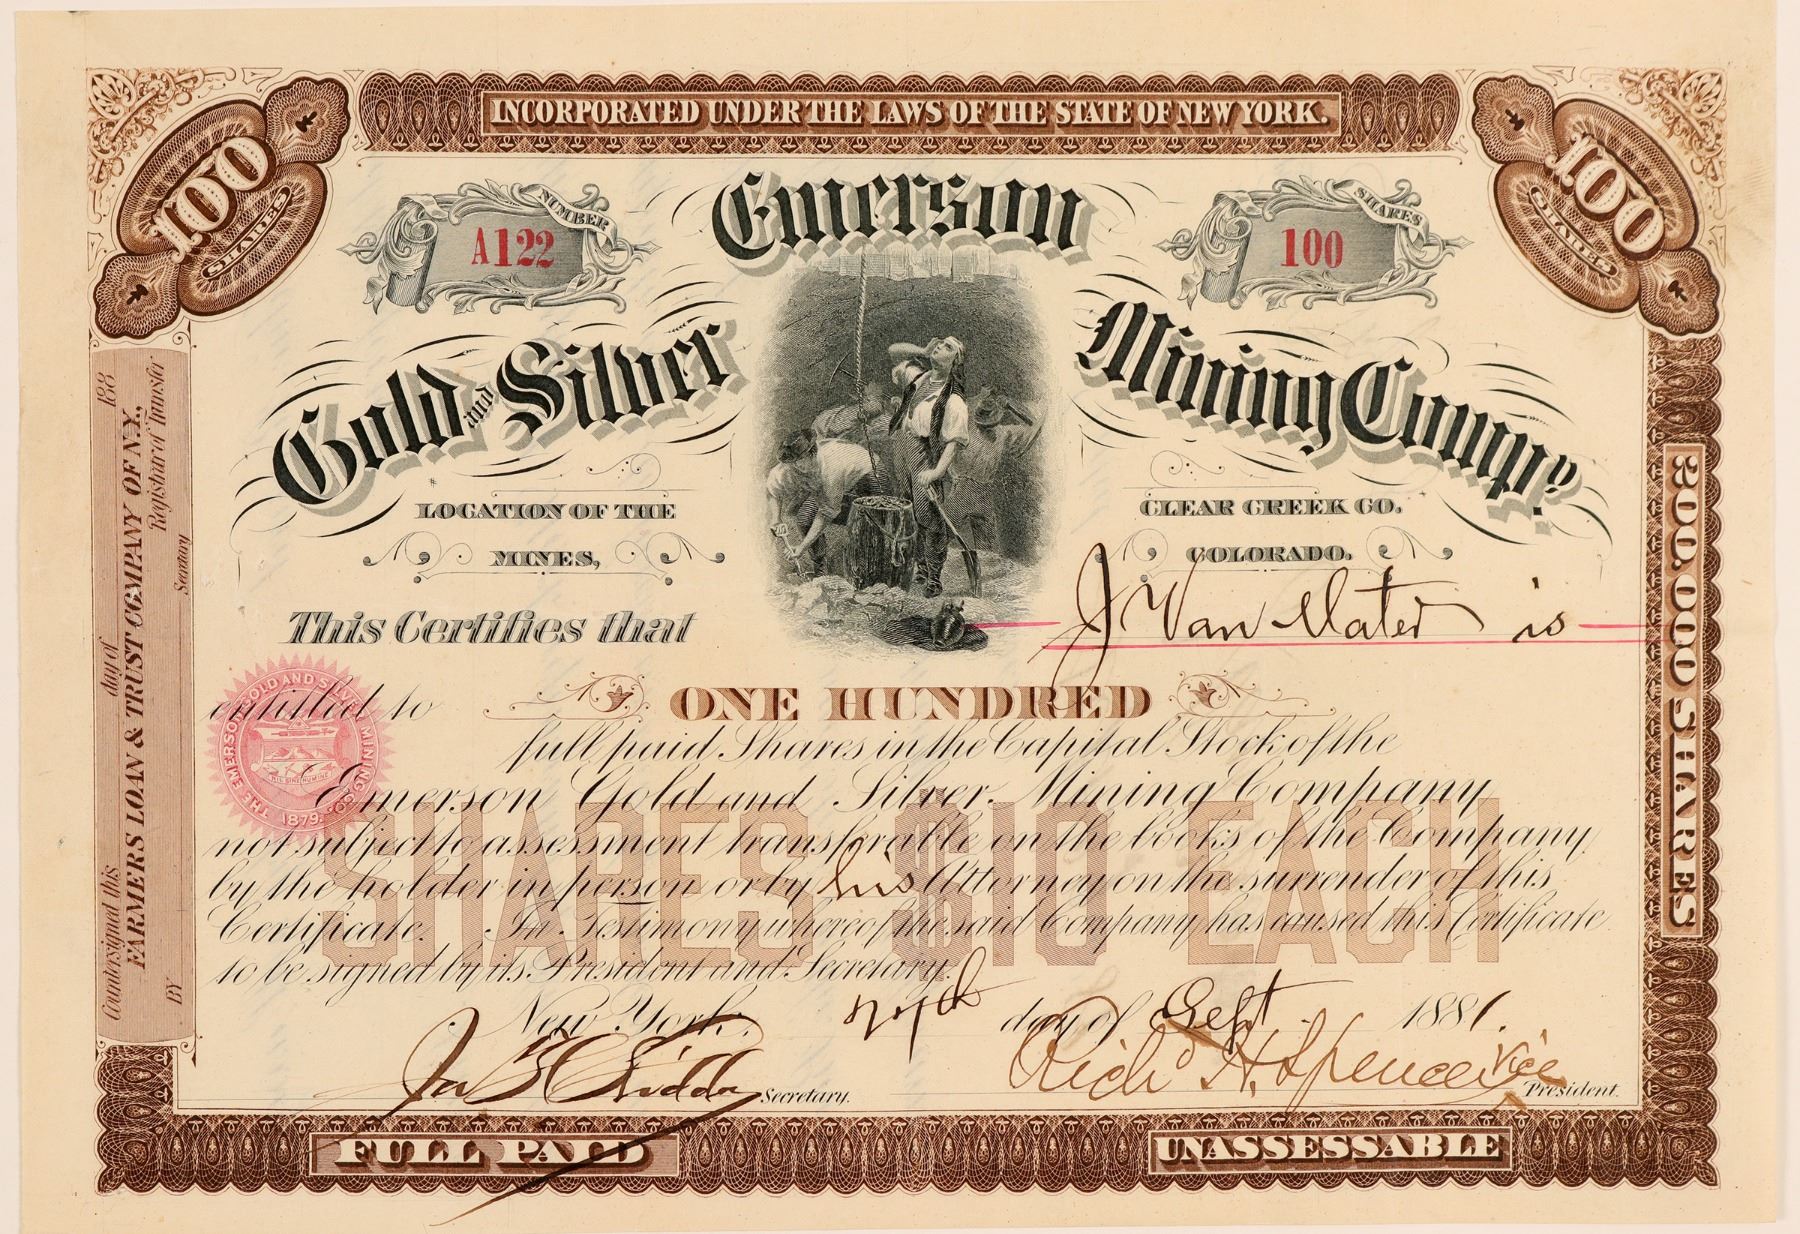 INCORPORATED UNDER THE LAWS OF THE STATE OF NEW YORK.
100 SHARES
100 SHARES
NUMBER
A122
SHARES
100
Emerson
Gold and Silver Mining Compy.
LOCATION OF THE MINES,
CLEAR CREEK CO. COLORADO.
This Certifies that J Van Mater is
entitled to ONE HUNDRED
full paid Shares in the Capital Stock of the
Emerson Gold and Silver Mining Company
not subject to assessment transferable on the books of the Company
by the holder in person or by his Attorney on the surrender of this
Certificate. In Testimony whereof the said Company has caused this Certificate
to be signed by its President and Secretary.
New York, day of Sept 1881.
Secretary.
Rich'd H. Spencer Vice President.
SHARES $10 EACH
FULL PAID
UNASSESSABLE
200,000 SHARES
Countersigned this day of 188
FARMERS LOAN & TRUST COMPANY OF N.Y.,
Registrar of Transfer
BY Secretary
THE EMERSON GOLD AND SILVER MINING CO.
1879.
NIL SINE NUMINE